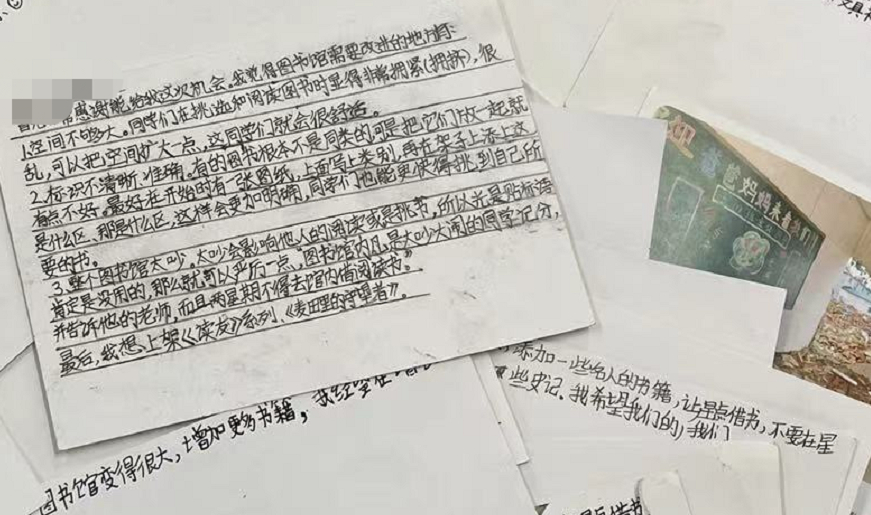 感谢能给我这次机会。我觉得图书馆需要改进的地方有:
1.空间不够大。同学们在挑选和阅读图书时显得非常拥紧(拥挤),很
乱,可以把空间扩大一点,这同学们就会很舒适。
2.标识不清晰、准确。有的图书根本不是同类的可是把它们放一起就
有点不好。最好在开始时有一张图纸,上面写上类别,再在架子上添上这
是什么区、那是什么区,这样会更加明确,同学们也能更快得挑到自己所
要的书。
3.整个图书馆太吵。太吵会影响他人的阅读或是挑书,所以光是贴标语
肯定是没用的,那么就可以严厉一点。图书馆内凡是大吵大闹的同学记分,
并告诉他的老师,而且两星期不得去馆内借阅读书。
最后,我想上架《读友》系列、《麦田里的守望者》。
图书馆变得很大,增加更多书籍,我经常在
添加一些名人的书籍,让早点借书,不要在星
些史记。我希望我们的,我们
爸妈妈来看我们
点借书
文具